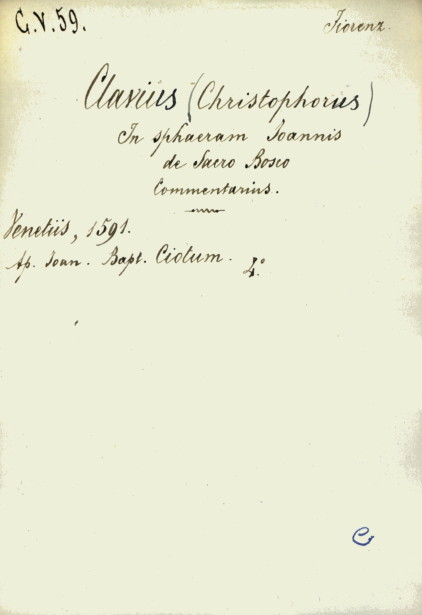 C.V.59.
Fiorenz.
Clavius (Christophorus)
In sphaeram Joannis
de Sacro Bosco
Commentarius.
Venetiis, 1591.
Ap. Joan. Bapt. Ciotum. 4.°
C